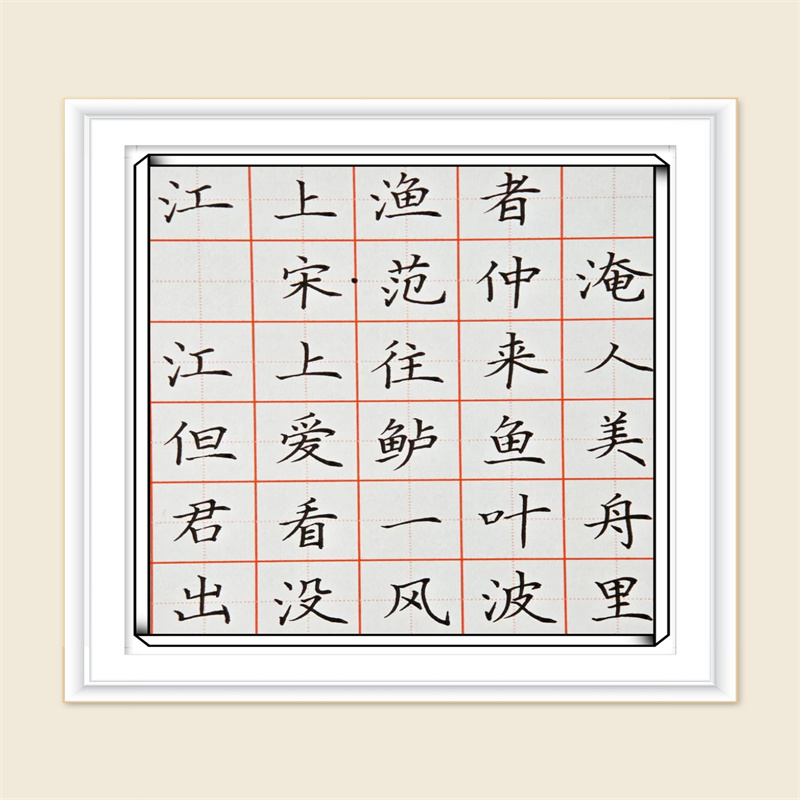 江上渔者
宋·范仲淹
江上往来人
但爱鲈鱼美
君看一叶舟
出没风波里